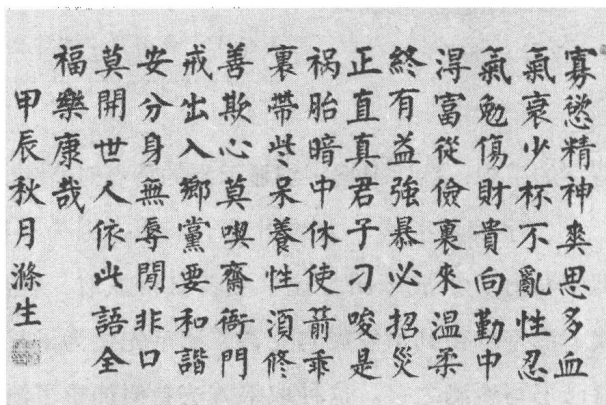 寡慾精神爽思多血
氣衰少杯不亂性忍
氣勉傷財貴向勤中
淂富從儉裏來溫柔
終有益強暴必招災
正直真君子刁唆是
祸胎暗中休使箭乖
裏帶些呆養性湏修
善欺心莫喫齋衙門
戒出入鄉黨要和諧
安分身無辱閒非口
莫開世人依此語全
福樂康哉
甲辰秋月滌生